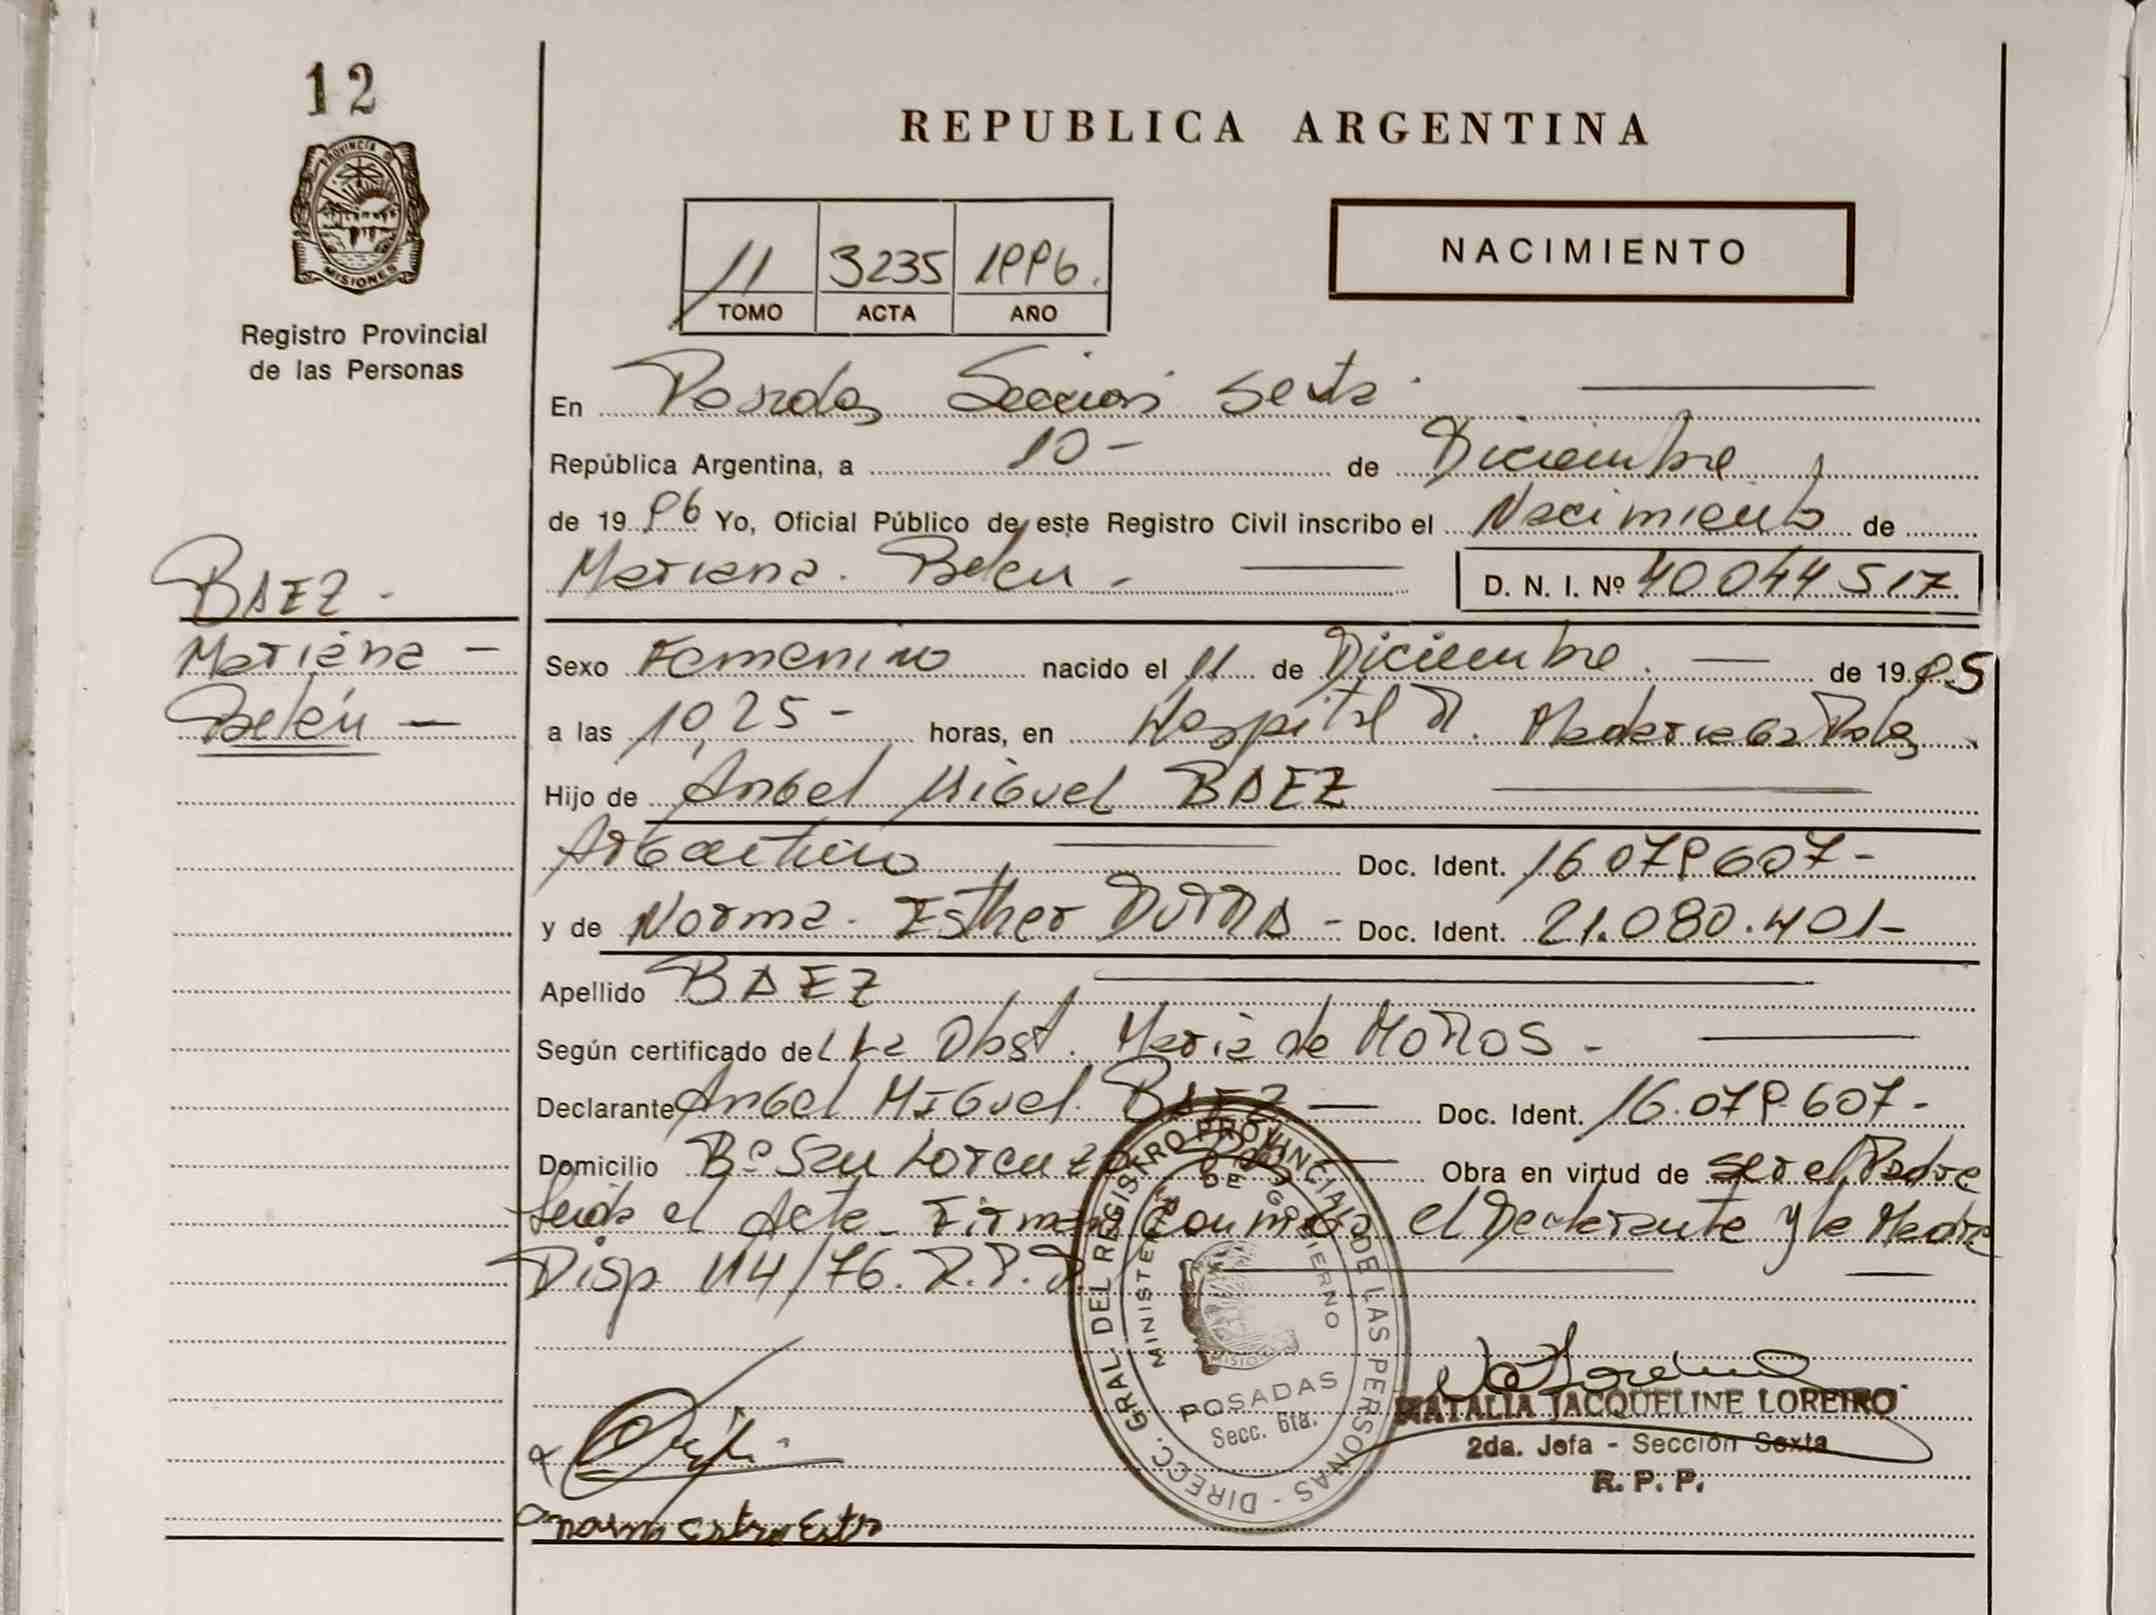 12
PROVINCIA DE
MISIONES
Registro Provincial
de las Personas
REPUBLICA ARGENTINA
11 3235 1996.
TOMO ACTA AÑO
NACIMIENTO
En Posadas Seccion Sexta
República Argentina, a 10- de Diciembre
de 1996 Yo, Oficial Público de este Registro Civil inscribo el Nacimiento de
Mariana. Belen - D. N. I. Nº 40044517
BAEZ -
Mariana -
Belén -
Sexo Femenino nacido el 11 de Diciembre. de 1995
a las 10,25- horas, en Hospital R. Madariaga Pdas
Hijo de Angel Miguel BAEZ
Argentino Doc. Ident. 16.079607-
y de Norma. Esther DUTRA - Doc. Ident. 21.080.401-
Apellido BAEZ
Según certificado de Obst. Maria de
Declarante Angel MIGuel BAEZ - Doc. Ident. 16.079.607-
Domicilio Bº San Lorenzo Obra en virtud de ser el Padre
Leida el Acta - Firman conmigo el Declarante y la Madre
Disp 114/76. R.P.P.
DIRECC. GRAL. DEL REGISTRO PROVINCIAL DE LAS PERSONAS -
MINISTERIO DE GOBIERNO
MISIONES
POSADAS
Secc. 6ta.
NATALIA JACQUELINE LOREIRO
2da. Jefa - Sección Sexta
R. P. P.